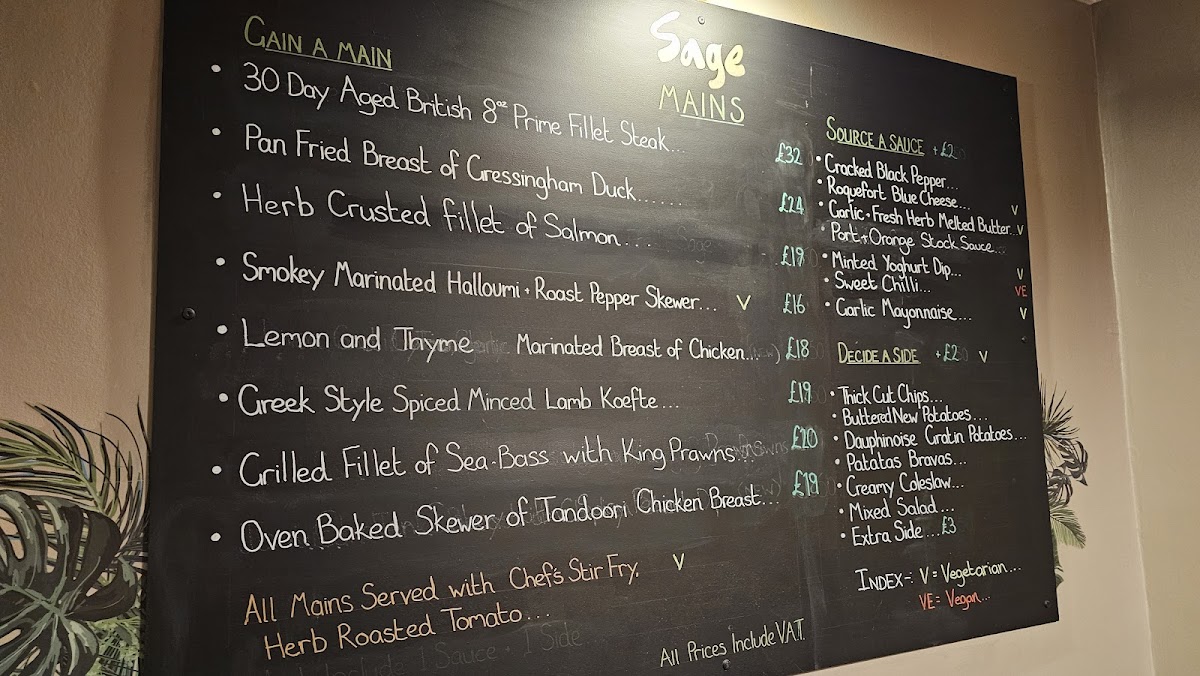 Sage
MAINS
GAIN A MAIN
• 30 Day Aged British 8oz Prime Fillet Steak... £32
• Pan Fried Breast of Gressingham Duck...... £24
• Herb Crusted fillet of Salmon... £19
• Smokey Marinated Halloumi + Roast Pepper Skewer... V £16
• Lemon and Thyme Marinated Breast of Chicken... £18
• Greek Style Spiced Minced Lamb Koefte... £19
• Grilled Fillet of Sea-Bass with King Prawns... £20
• Oven Baked Skewer of Tandoori Chicken Breast... £19
All Mains Served with Chef's Stir Fry, V
Herb Roasted Tomato...
Include 1 Sauce + 1 Side
All Prices Include V.A.T.
SOURCE A SAUCE +£2
• Cracked Black Pepper...
• Roquefort Blue Cheese... V
• Garlic + Fresh Herb Melted Butter... V
• Port + Orange Stock Sauce...
• Minted Yoghurt Dip... V
• Sweet Chilli... VE
• Garlic Mayonnaise... V
DECIDE A SIDE +£2 V
• Thick Cut Chips...
• Buttered New Potatoes...
• Dauphinoise Gratin Potatoes...
• Patatas Bravas...
• Creamy Coleslaw...
• Mixed Salad...
• Extra Side...£3
INDEX-: V = Vegetarian...
VE = Vegan...